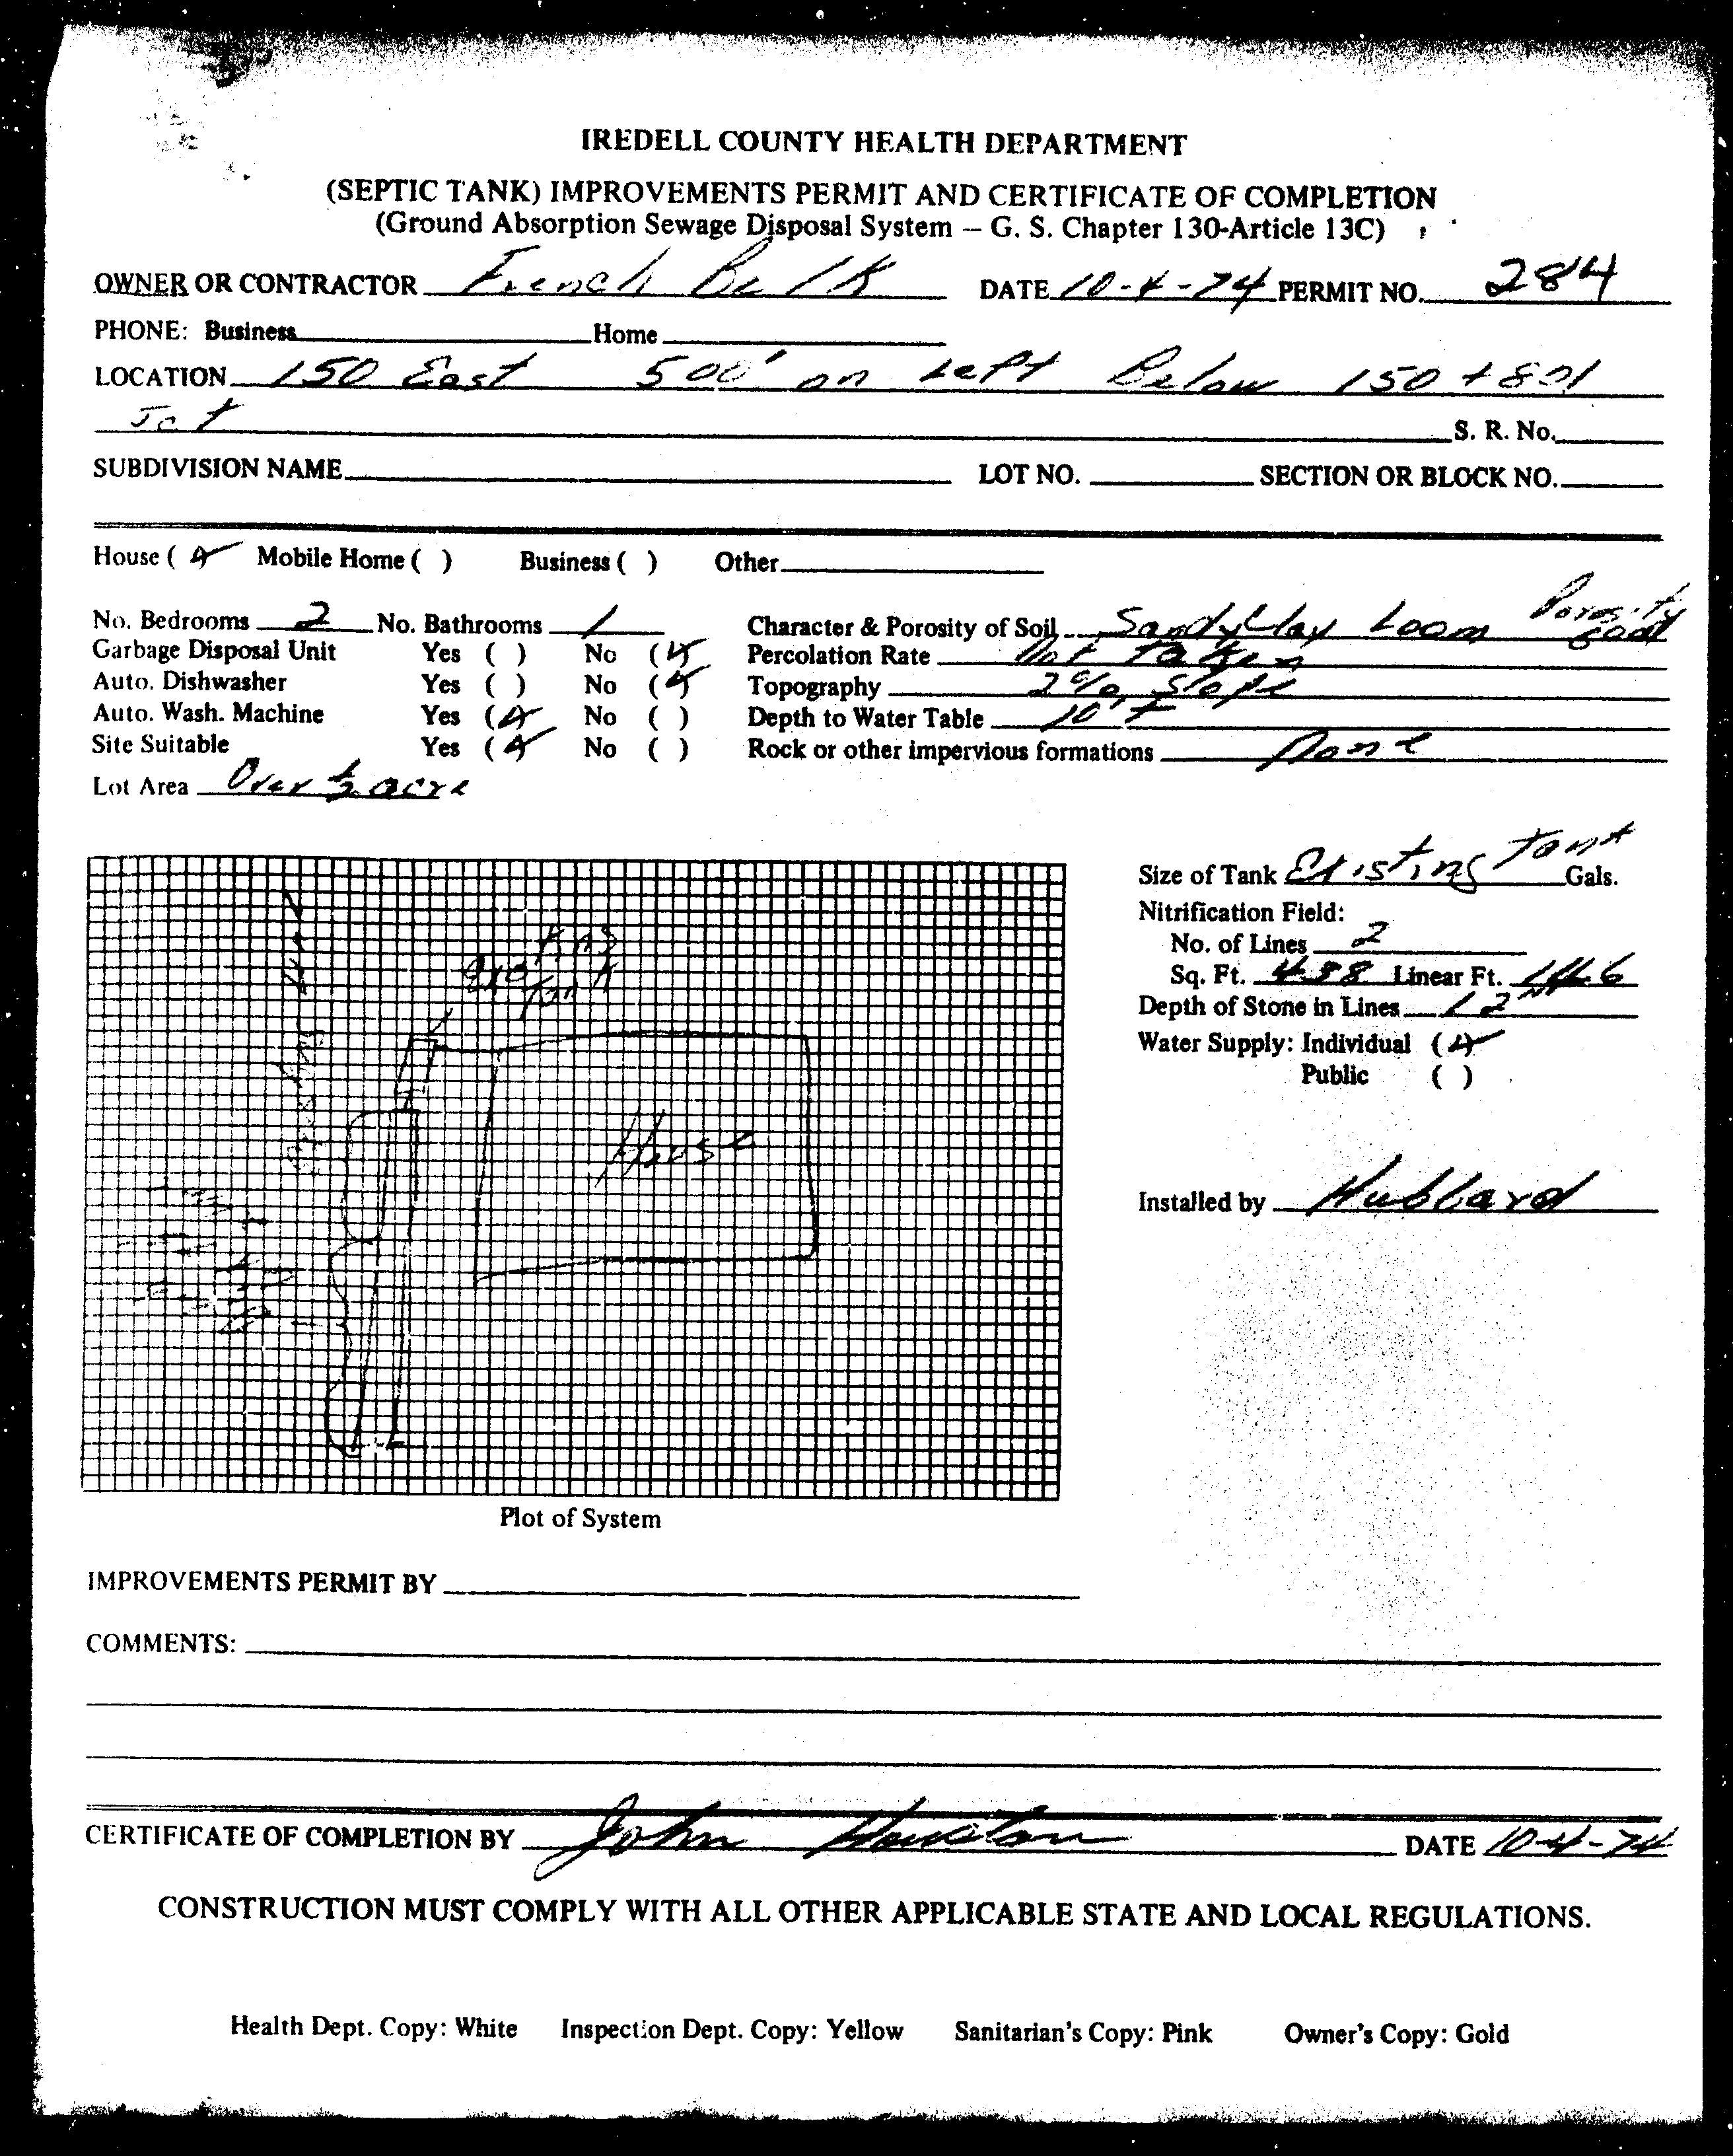 IREDELL COUNTY HEALTH DEPARTMENT
(SEPTIC TANK) IMPROVEMENTS PERMIT AND CERTIFICATE OF COMPLETION
(Ground Absorption Sewage Disposal System – G. S. Chapter 130-Article 13C)
OWNER OR CONTRACTOR French Belk DATE 10-4-74 PERMIT NO. 284
PHONE: Business Home
LOCATION 150 East 500' on Left Below 150 + 801
Jct S. R. No.
SUBDIVISION NAME LOT NO. SECTION OR BLOCK NO.
House ( ✓ Mobile Home ( ) Business ( ) Other
No. Bedrooms 2 No. Bathrooms 1 Character & Porosity of Soil Sandy Clay Loam Porosity good
Garbage Disposal Unit Yes ( ) No (✓) Percolation Rate Not Taken
Auto. Dishwasher Yes ( ) No (✓) Topography 2% Slope
Auto. Wash. Machine Yes (✓) No ( ) Depth to Water Table 10'+
Site Suitable Yes (✓) No ( ) Rock or other impervious formations None
Lot Area Over ½ acre
Size of Tank Existing Tank Gals.
Nitrification Field:
No. of Lines 2
Sq. Ft. 438 Linear Ft. 146
Depth of Stone in Lines 12"
Water Supply: Individual (✓)
Public ( )
Installed by Hubbard
Tank
House
Plot of System
IMPROVEMENTS PERMIT BY
COMMENTS:
CERTIFICATE OF COMPLETION BY John Houston DATE 10-4-74
CONSTRUCTION MUST COMPLY WITH ALL OTHER APPLICABLE STATE AND LOCAL REGULATIONS.
Health Dept. Copy: White Inspection Dept. Copy: Yellow Sanitarian's Copy: Pink Owner's Copy: Gold